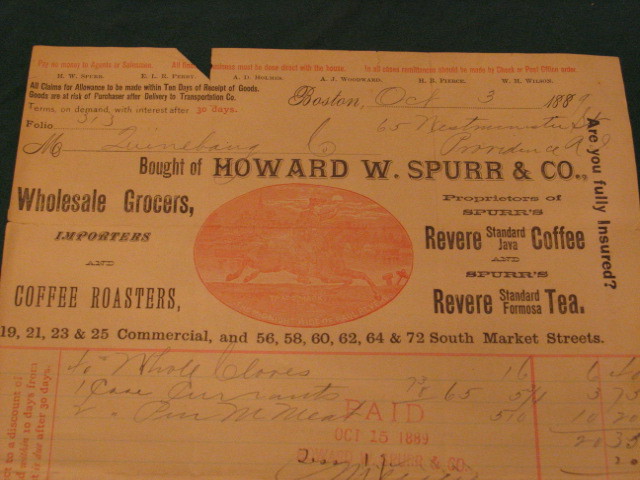 Pay no money to Agents or Salesmen. All business must be done direct with the house. In all cases remittances should be made by Check or Post Office order
H. W. SPURR. E. L. R. PERRY. A. D. HOLMES. A. J. WOODWARD. H. B. PIERCE. W. H. WILSON.
All Claims for Allowance to be made within Ten Days of Receipt of Goods.
Goods are at risk of Purchaser after Delivery to Transportation Co.
Terms, on demand, with interest after 30 days.
Boston, Oct 3 1889
Folio 313
65 Westminster St
M Quinebaug Co Providence R I
Bought of HOWARD W. SPURR & CO.,
Wholesale Grocers,
IMPORTERS
AND
COFFEE ROASTERS,
Proprietors of
SPURR'S
Revere Standard Java Coffee
AND
SPURR'S
Revere Standard Formosa Tea.
Are you fully Insured?
19, 21, 23 & 25 Commercial, and 56, 58, 60, 62, 64 & 72 South Market Streets.
Whole Cloves 16 6
1 Case Currants 65 5 1/4 3 73
2 " 10
20 35
PAID
OCT 15 1889
HOWARD W. SPURR & CO.
to a discount of
10 days from
due after 30 days.